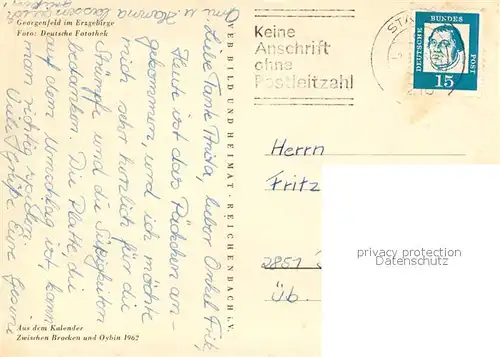 Georgenfeld im Erzgebirge
Foto: Deutsche Fotothek
Liebe Tante Frida, lieber Onkel Fritz,
Heute ist das Päckchen an-
gekommen, und ich möchte
mich sehr herzlich für die
Strümpfe und die Süßigkeiten
bedanken. Die Platte, die
auf dem Umschlag ist, kann
man richtig spielen.
Viele Grüße Eure
Omi u. Mamma lassen auch
Aus dem Kalender
Zwischen Brocken und Oybin 1962
VEB BILD UND HEIMAT · REICHENBACH i. V.
Keine
Anschrift
ohne
Postleitzahl
DEUTSCHE BUNDES POST
15
Herrn
Fritz
2851
üb.
privacy protection
Datenschutz